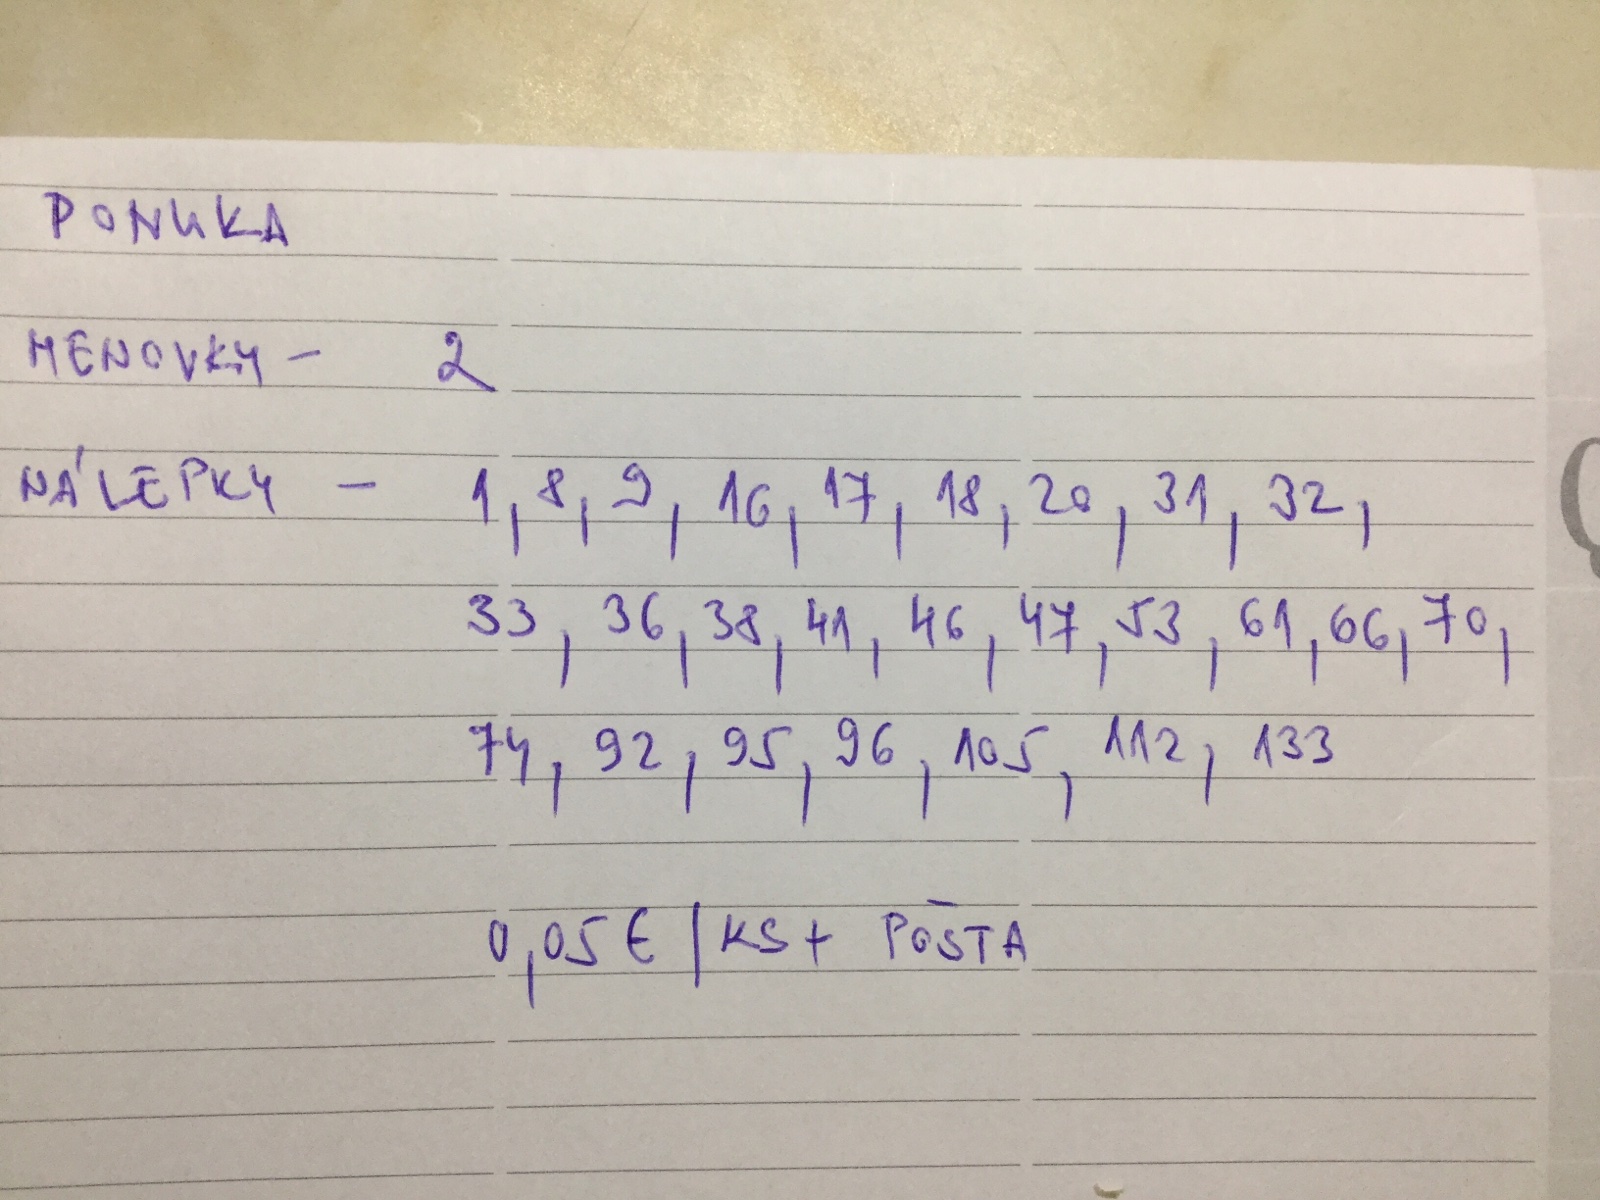 PONUKA
MENOVKY - 2
NÁLEPKY - 1, 8, 9, 16, 17, 18, 20, 31, 32,
33, 36, 38, 41, 46, 47, 53, 61, 66, 70,
74, 92, 95, 96, 105, 112, 133
0,05€/KS + POŠTA